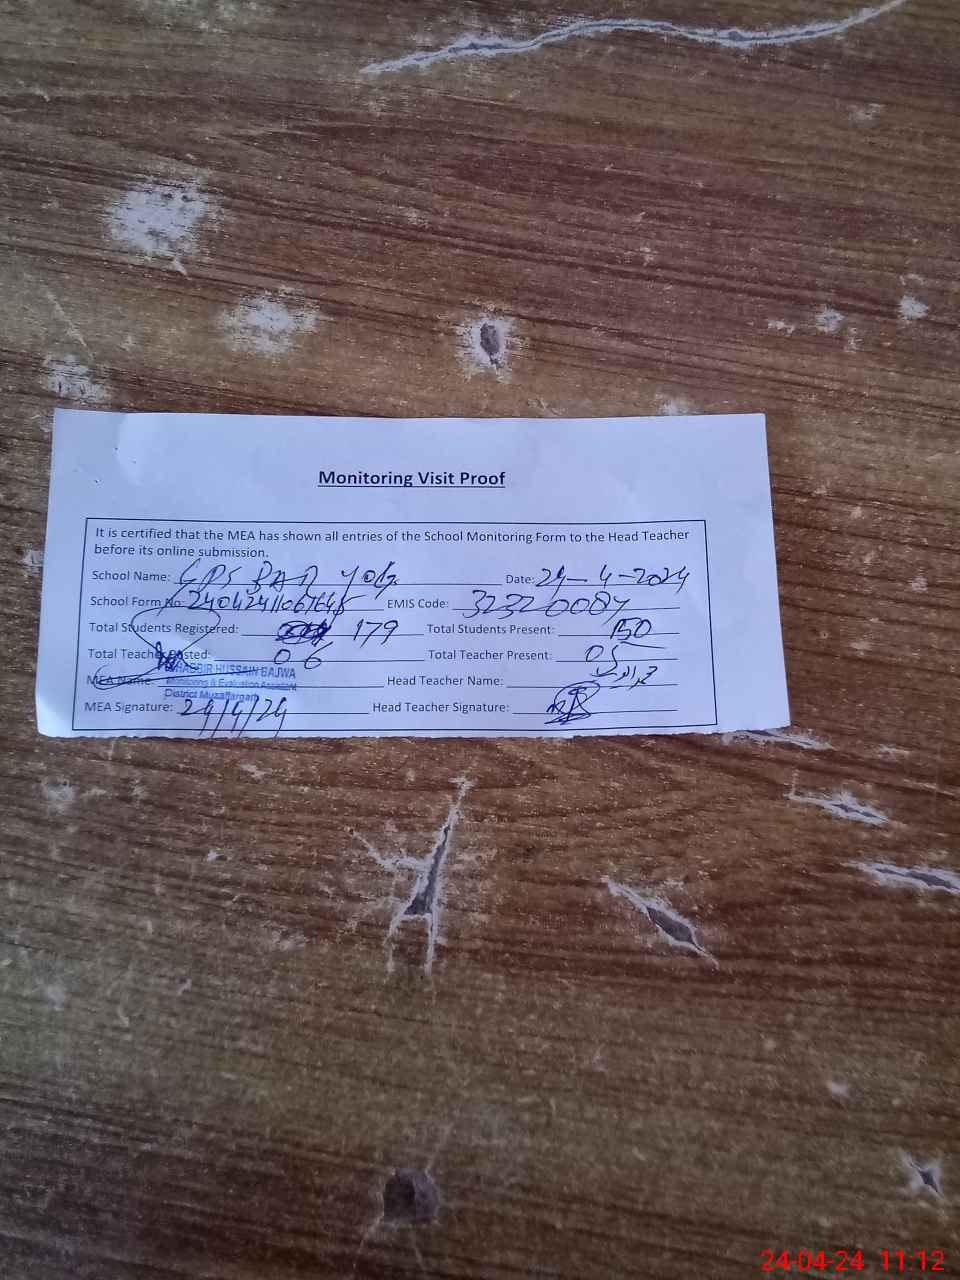 Monitoring Visit Proof
It is certified that the MEA has shown all entries of the School Monitoring Form to the Head Teacher
before its online submission.
School Name: GPS Date: 24-4-2024
School Form No: EMIS Code: 32320084
Total Students Registered: 179 Total Students Present: 150
Total Teacher Posted: 06 Total Teacher Present: 05
SHABBIR HUSSAIN BAJWA
MEA Name: Monitoring & Evaluation Assistant Head Teacher Name:
District Muzaffargarh
MEA Signature: 24/4/24 Head Teacher Signature:
24-04-24 11:12